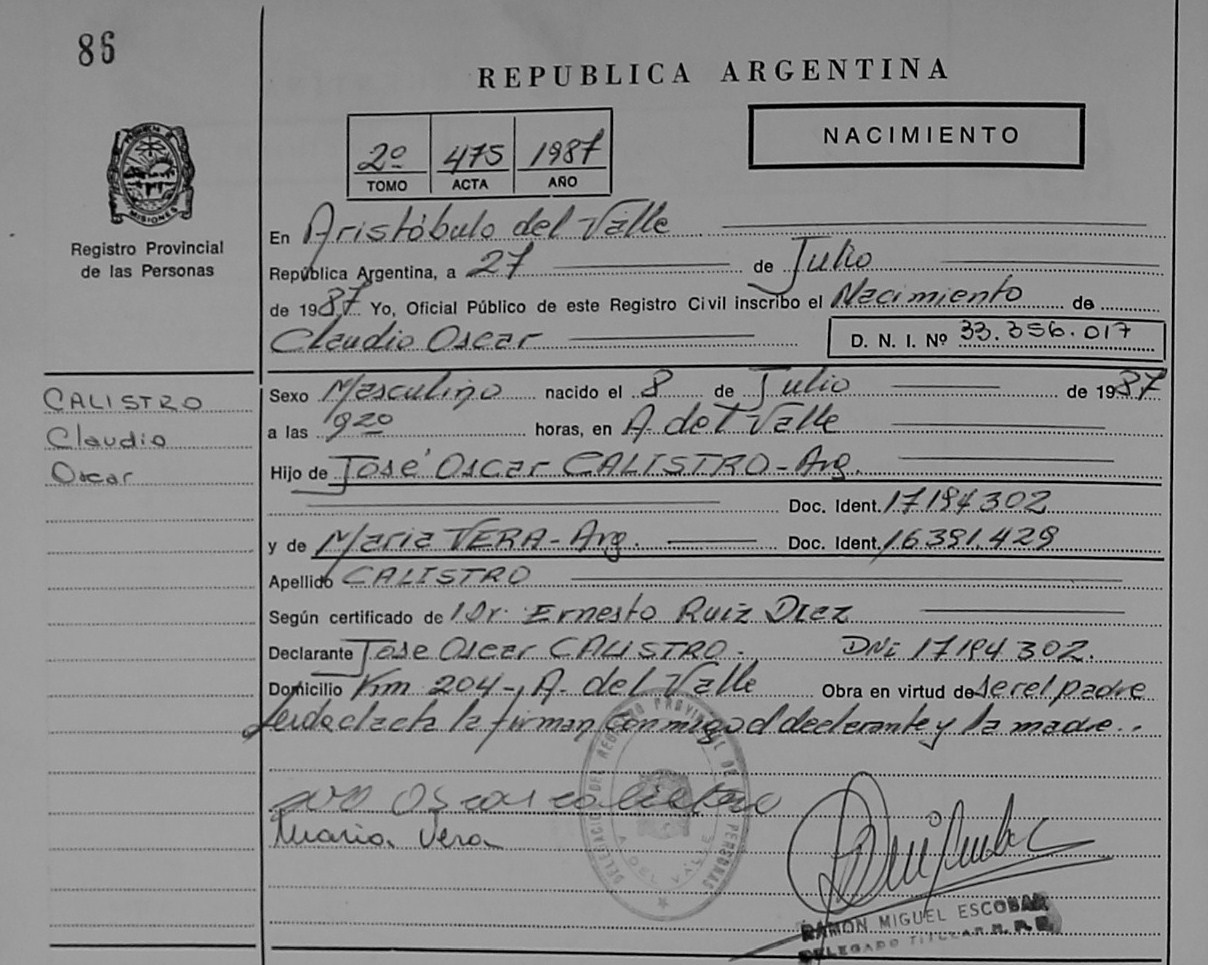 86
REPUBLICA ARGENTINA
NACIMIENTO
2º 475 1987
TOMO ACTA AÑO
MISIONES
Registro Provincial
de las Personas
En Aristóbulo del Valle
República Argentina, a 27 de Julio
de 1987 Yo, Oficial Público de este Registro Civil inscribo el Nacimiento de
Claudio Oscar
D. N. I. Nº 33.356.017
CALISTRO
Claudio
Oscar
Sexo Masculino nacido el 8 de Julio de 1987
a las 9 20 horas, en A. del Valle
Hijo de José Oscar CALISTRO - Arg.
Doc. Ident. 17194302
y de Maria VERA - Arg. Doc. Ident. 16391.429
Apellido CALISTRO
Según certificado de Dr. Ernesto Ruiz Diez
Declarante Jose Oscar CALISTRO. DNi 17194302.
Domicilio Km 204-, A. del Valle Obra en virtud de ser el padre
Leida el acta la firman conmigo el declarante y la madre..
Oscar calistro
Maria Vera
DELEGACION DEL REGISTRO PROVINCIAL DE PERSONAS
A. DEL VALLE
RAMON MIGUEL ESCOBAR
DELEGADO TITULAR R. P. P.